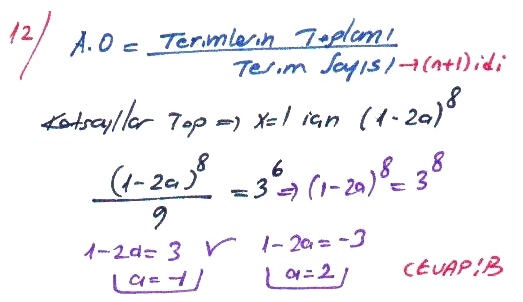 12/ A.O = Terimlerin Toplamı / Terim Sayısı → (n+1) idi
Katsayılar Top ⇒ x=1 için (1-2a)^8
(1-2a)^8 / 9 = 3^6 ⇒ (1-2a)^8 = 3^8
1-2a = 3 ✓ 1-2a = -3
a = -1 a = 2 CEVAP: B